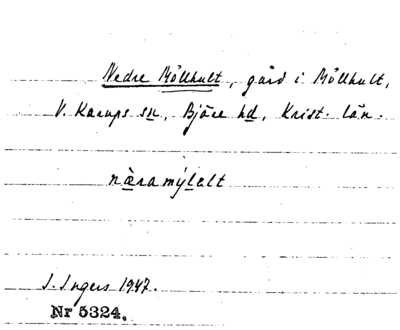 Nedre Möllhult, gård i Möllhult,
V. Karups sn, Bjäre hd, Krist. län.
næramýlelt
I. Ingers 1947.
Nr 5324.